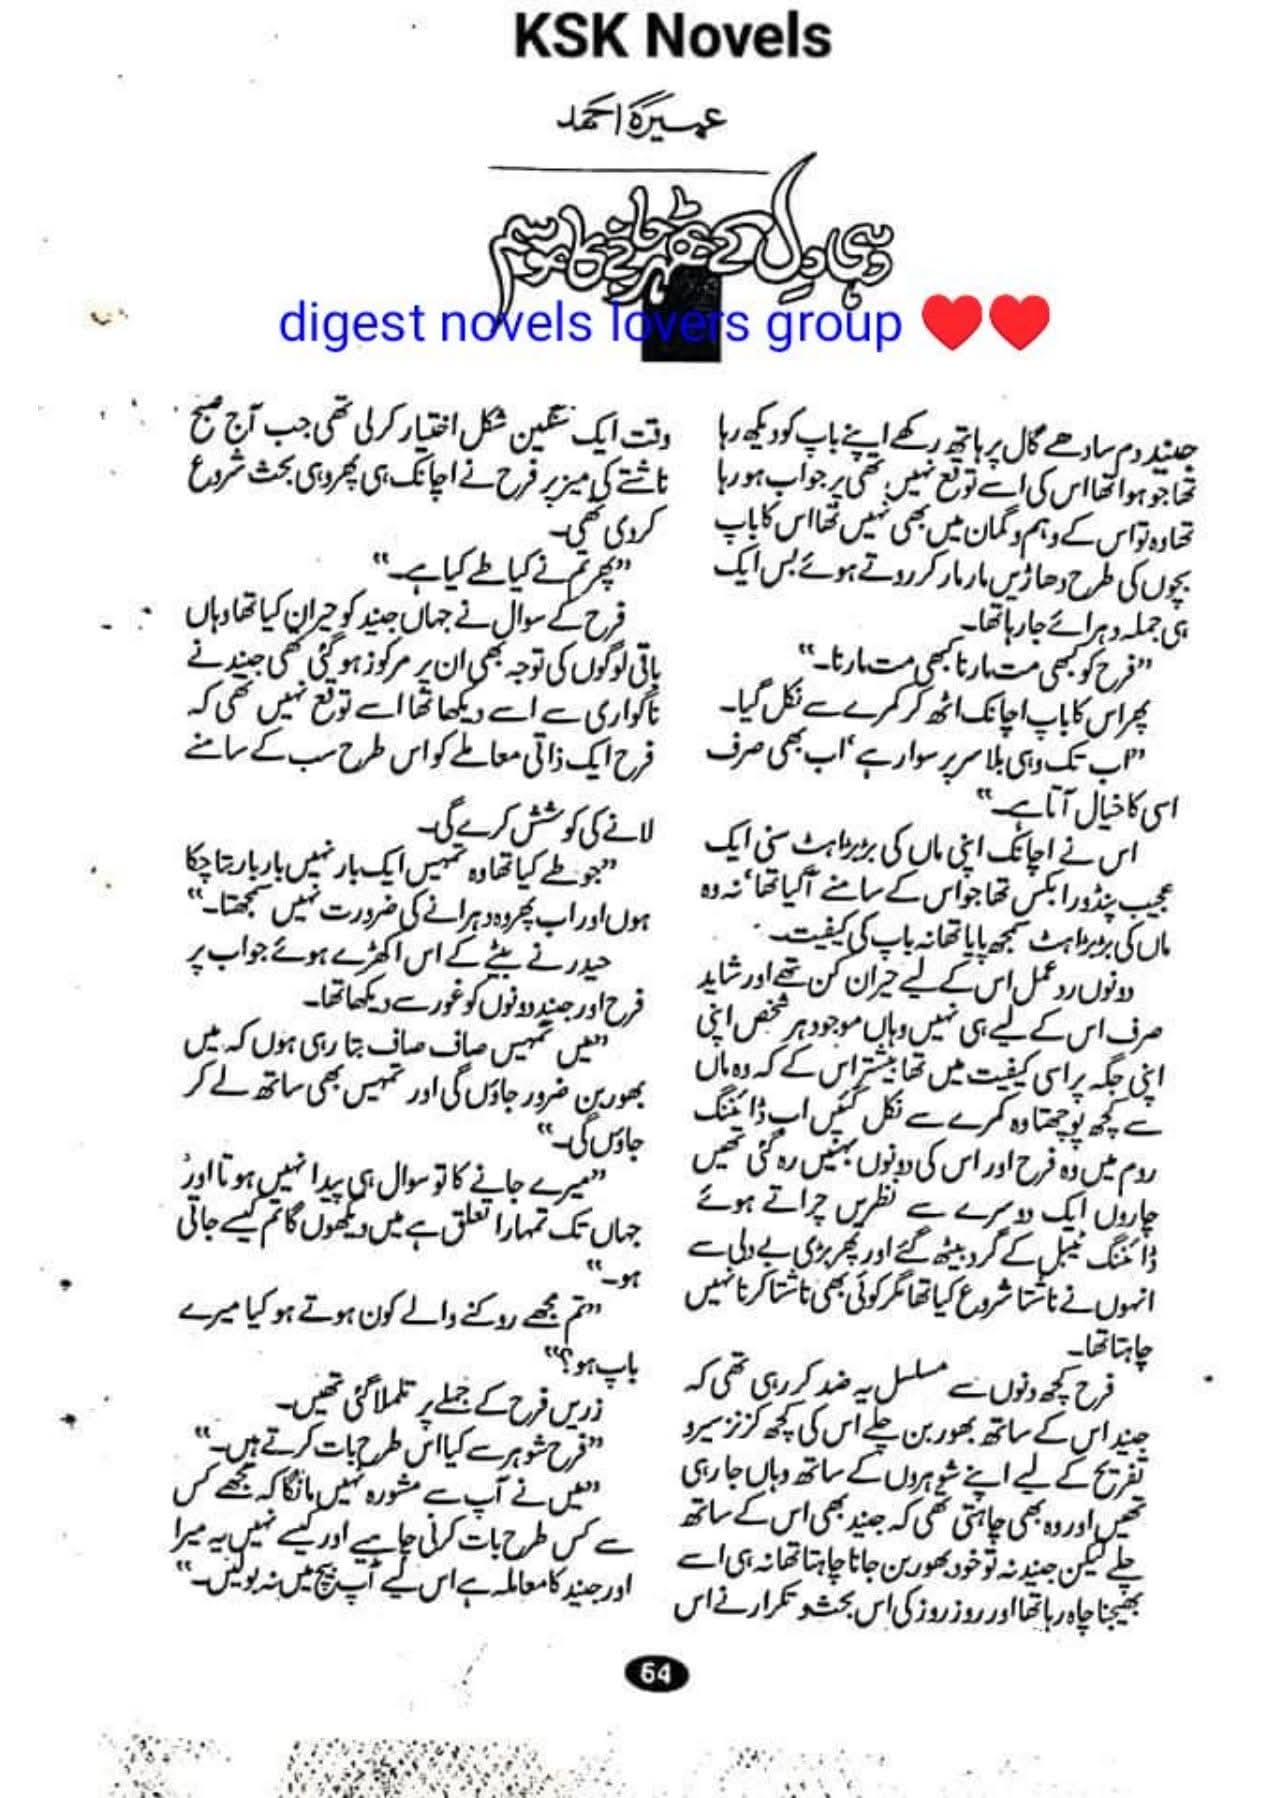 KSK Novels
عمیرہ احمد
وہی دل کے ٹھہر جانے کا موسم
digest novels lovers group ❤️❤️
جنید دم سادھے گال پر ہاتھ رکھے اپنے باپ کو دیکھ رہا
تھا جو ہوا تھا اس کی اسے توقع نہیں تھی پر جواب ہو رہا
تھا وہ تو اس کے وہم و گمان میں بھی نہیں تھا اس کا باپ
بچوں کی طرح دھاڑیں مار مار کر روتے ہوئے بس ایک
ہی جملہ دہرائے جا رہا تھا۔
”فرح کو کبھی مت مارنا کبھی مت مارنا۔“
پھر اس کا باپ اچانک اٹھ کر کمرے سے نکل گیا۔
”اب تک وہی بلا سر پر سوار ہے‘ اب بھی صرف
اسی کا خیال آتا ہے۔“
اس نے اچانک اپنی ماں کی بڑبڑاہٹ سنی ایک
عجیب پنڈورا بکس تھا جو اس کے سامنے آ گیا تھا‘ نہ وہ
ماں کی بڑبڑاہٹ سمجھ پایا تھا نہ باپ کی کیفیت۔
دونوں رد عمل اس کے لیے حیران کن تھے اور شاید
صرف اس کے لیے ہی نہیں وہاں موجود ہر شخص اپنی
اپنی جگہ پر اسی کیفیت میں تھا بیشتر اس کے کہ وہ ماں
سے کچھ پوچھتا وہ کمرے سے نکل گئیں اب ڈائننگ
روم میں وہ فرح اور اس کی دونوں بہنیں رہ گئی تھیں
چاروں ایک دوسرے سے نظریں چراتے ہوئے
ڈائننگ ٹیبل کے گرد بیٹھ گئے اور پھر بڑی بے دلی سے
انہوں نے ناشتا شروع کیا تھا مگر کوئی بھی ناشتا کرنا نہیں
چاہتا تھا۔
فرح کچھ دنوں سے مسلسل یہ ضد کر رہی تھی کہ
جنید اس کے ساتھ بھوربن چلے اس کی کچھ کزنز سیرو
تفریح کے لیے اپنے شوہروں کے ساتھ وہاں جا رہی
تھیں اور وہ بھی چاہتی تھی کہ جنید بھی اس کے ساتھ
چلے لیکن جنید نہ تو خود بھوربن جانا چاہتا تھا نہ ہی اسے
بھیجنا چاہ رہا تھا اور روز روز کی اس بحث و تکرار نے اس
وقت ایک سنگین شکل اختیار کر لی تھی جب آج صبح
ناشتے کی میز پر فرح نے اچانک ہی پھر وہی بحث شروع
کر دی تھی۔
”پھر تم نے کیا طے کیا ہے۔“
فرح کے سوال نے جہاں جنید کو حیران کیا تھا وہاں
باقی لوگوں کی توجہ بھی ان پر مرکوز ہو گئی تھی جنید نے
ناگواری سے اسے دیکھا تھا اسے توقع نہیں تھی کہ
فرح ایک ذاتی معاملے کو اس طرح سب کے سامنے
لانے کی کوشش کرے گی۔
”جو طے کیا تھا وہ تمہیں ایک بار نہیں بار بار بتا چکا
ہوں اور اب پھر وہ دہرانے کی ضرورت نہیں سمجھتا۔“
حیدر نے بیٹے کے اس اکھڑے ہوئے جواب پر
فرح اور جنید دونوں کو غور سے دیکھا تھا۔
”میں تمہیں صاف صاف بتا رہی ہوں کہ میں
بھوربن ضرور جاؤں گی اور تمہیں بھی ساتھ لے کر
جاؤں گی۔“
”میرے جانے کا تو سوال ہی پیدا نہیں ہوتا اور
جہاں تک تمہارا تعلق ہے میں دیکھوں گا تم کیسے جاتی
ہو۔“
”تم مجھے روکنے والے کون ہوتے ہو کیا میرے
باپ ہو؟“
زریں فرح کے جملے پر تلملا گئی تھیں۔
”فرح شوہر سے کیا اس طرح بات کرتے ہیں۔“
”میں نے آپ سے مشورہ نہیں مانگا کہ مجھے کس
سے کس طرح بات کرنی چاہیے اور کیسے نہیں یہ میرا
اور جنید کا معاملہ ہے اس لیے آپ بیچ میں نہ بولیں۔“
64